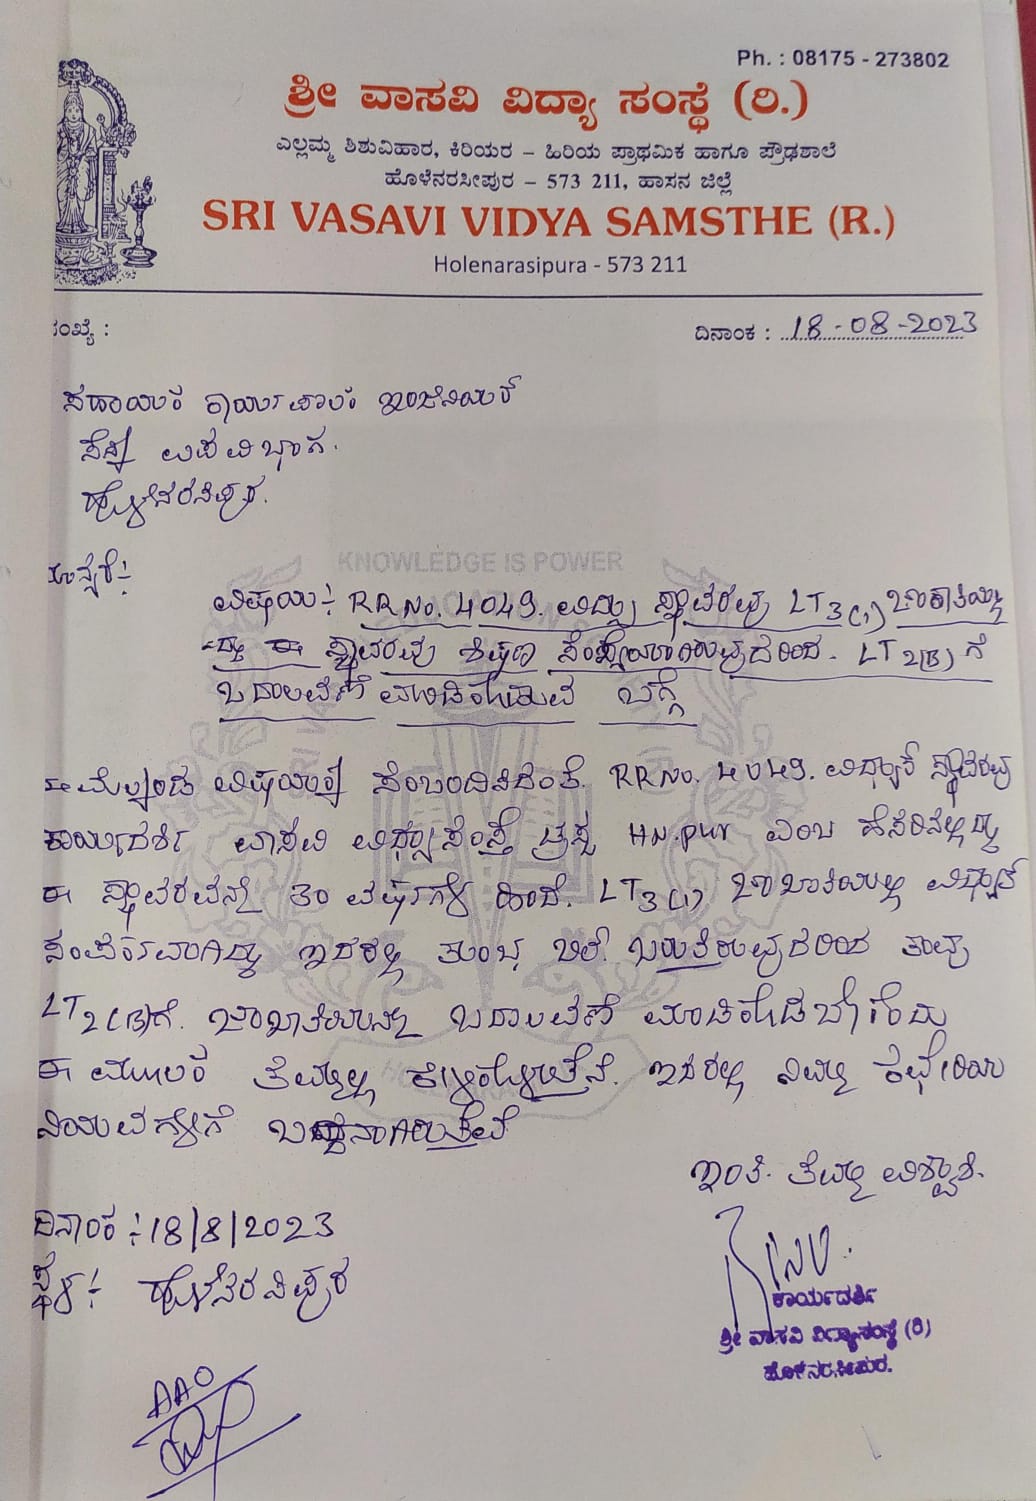 Ph. : 08175 - 273802
ಶ್ರೀ ವಾಸವಿ ವಿದ್ಯಾ ಸಂಸ್ಥೆ (ರಿ.)
ಎಲ್ಲಮ್ಮ ಶಿಶುವಿಹಾರ, ಕಿರಿಯರ – ಹಿರಿಯ ಪ್ರಾಥಮಿಕ ಹಾಗೂ ಪ್ರೌಢಶಾಲೆ
ಹೊಳೆನರಸೀಪುರ – 573 211, ಹಾಸನ ಜಿಲ್ಲೆ
SRI VASAVI VIDYA SAMSTHE (R.)
Holenarasipura - 573 211
ಸಂಖ್ಯೆ :
ದಿನಾಂಕ : 18-08-2023
ಸಹಾಯಕ ಕಾರ್ಯಪಾಲಕ ಇಂಜಿನಿಯರ್
ಸೆಸ್ಕ್ ಉಪ ವಿಭಾಗ.
ಹೊಳೆನರಸಿಪುರ.
ಮಾನ್ಯರೆ:-
KNOWLEDGE IS POWER
ವಿಷಯ:- RR No. 4049. ವಿದ್ಯುತ್ ಸ್ಥಾವರವು LT3(1) ಜಾಕಾತಿಯಲ್ಲಿ
ದ್ದು ಈ ಸ್ಥಾವರವು ಶಿಕ್ಷಣ ಸಂಸ್ಥೆಯಾಗಿರುವುದರಿಂದ. LT2(B) ಗೆ
ಬದಲಾವಣೆ ಮಾಡಿಕೊಡುವ ಬಗ್ಗೆ
ಈ ಮೇಲ್ಕಂಡ ವಿಷಯಕ್ಕೆ ಸಂಬಂದಿಸಿದಂತೆ. RR No. 4049. ವಿದ್ಯುತ್ ಸ್ಥಾವರವು
ಕಾರ್ಯದರ್ಶಿ ವಾಸವಿ ವಿಧ್ಯಾಸಂಸ್ಥೆ ಟ್ರಸ್ಟ HN.pur ಎಂಬ ಹೆಸರಿನಲ್ಲಿದ್ದು
ಈ ಸ್ಥಾವರವನ್ನು 30 ವರ್ಷಗಳ ಹಿಂದೆ. LT3(1) ಜಾಖಾತಿಯಲ್ಲಿ ವಿಧ್ಯುತ್
ಸಂಪರ್ಕವಾಗಿದ್ದು ಇದರಲ್ಲಿ ತುಂಬ ಬಿಲ್ ಬರುತ್ತಿರುವುದರಿಂದ ತಾವು
LT2(B)ಗೆ. ಜಾಖಾತಿಯನ್ನು ಬದಲಾವಣೆ ಮಾಡಿಕೊಡಬೇಕೆಂದು
ಈ ಮೂಲಕ ತಮ್ಮಲ್ಲಿ ಕೇಳಿಕೊಳ್ಳುತ್ತೇನೆ. ಇದರಲ್ಲಿ ನಿಮ್ಮ ಕಛೇರಿಯ
ನಿಯಮಗಳಿಗೆ ಬದ್ಧನಾಗಿರುತ್ತೇವೆ
ಇಂತಿ. ತಮ್ಮ ವಿಶ್ವಾಸಿ.
ದಿನಾಂಕ :- 18/8/2023
ಸ್ಥಳ :- ಹೊಳೆನರಸಿಪುರ
ಕಾರ್ಯದರ್ಶಿ
ಶ್ರೀ ವಾಸವಿ ವಿದ್ಯಾಸಂಸ್ಥೆ (ರಿ)
ಹೊಳೆನರಸೀಪುರ.
AAO